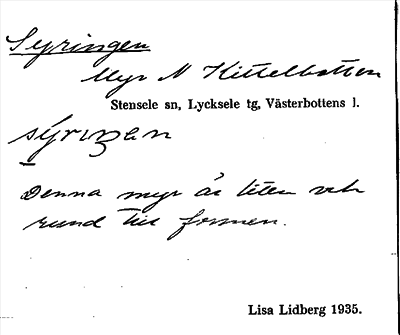 Syringen
Myr N Kittelbotten
Stensele sn, Lycksele tg, Västerbottens l.
sýriŋen
Denna myr är liten och
rund till formen.
Lisa Lidberg 1935.